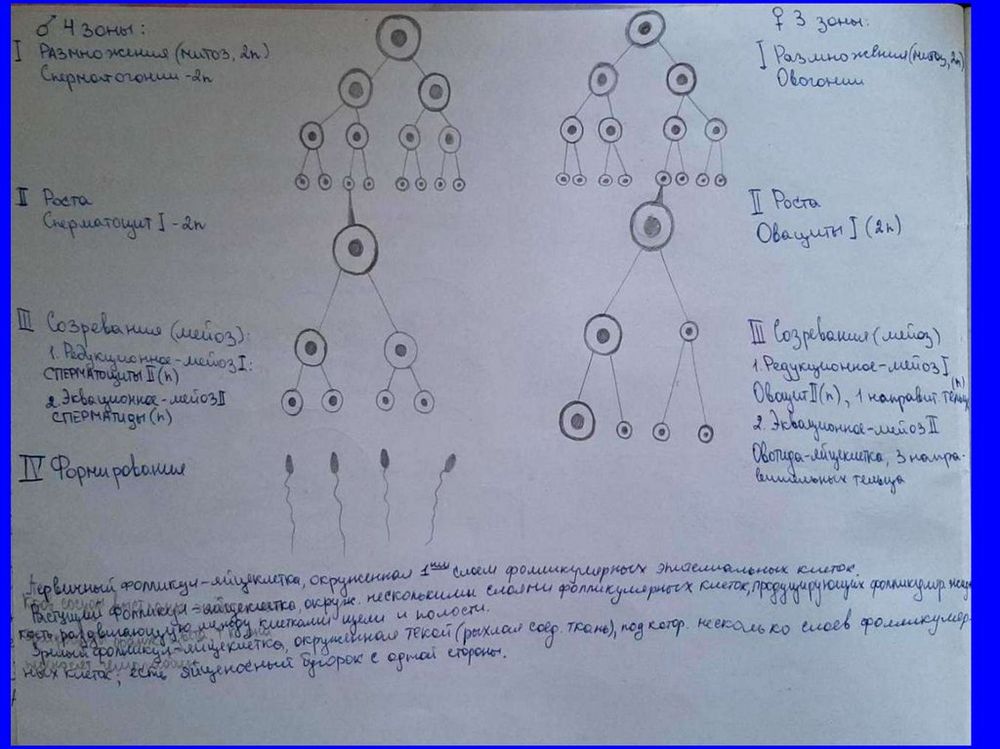 ♂ 4 зоны:
I Размножения (митоз, 2n)
Сперматогонии - 2n
II Роста
Сперматоцит I - 2n
III Созревания (мейоз):
1. Редукционное - мейоз I:
СПЕРМАТОЦИТЫ II (n)
2. Эквационное - мейоз II
СПЕРМАТИДЫ (n)
IV Формирования
♀ 3 зоны:
I Размножения (митоз, 2n)
Овогонии
II Роста
Овациты I (2n)
III Созревания (мейоз)
1. Редукционное - мейоз I
Овацит II (n), 1 направит. тельце (n)
2. Эквационное - мейоз II
Овотида - яйцеклетка, 3 направ-
вительных тельца
Первичный фолликул - яйцеклетка, окруженная 1ным слоем фолликулярных эпителиальных клеток.
Растущий фолликул - яйцеклетка, окруж. несколькими слоями фолликулярных клеток, продуцирующих фолликуляр.
кость, раздвигающую между клетками щели и полости.
Зрелый фолликул - яйцеклетка, окруженная текой (рыхлая соед. ткань), под котор. несколько слоев фолликуляр-
ных клеток, есть яйценосный бугорок с одной стороны.